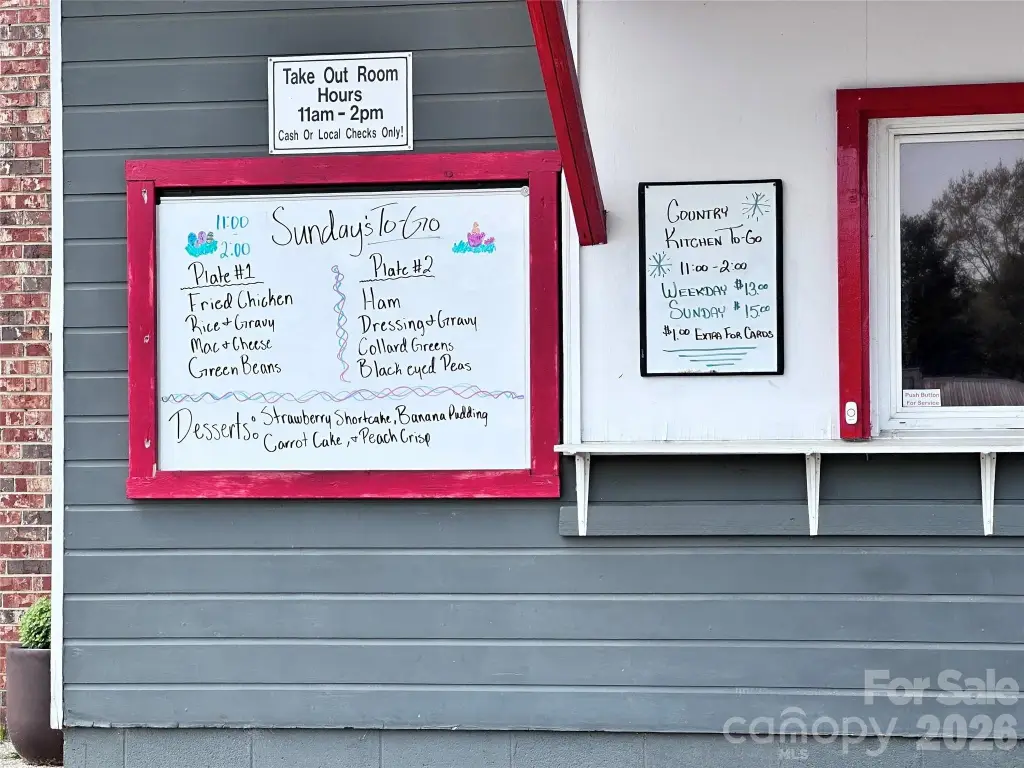 Take Out Room
Hours
11am - 2pm
Cash Or Local Checks Only!
11:00
2:00
Sunday's To-Go
Plate #1
Fried Chicken
Rice + Gravy
Mac + Cheese
Green Beans
Plate #2
Ham
Dressing + Gravy
Collard Greens
Black eyed Peas
Desserts: Strawberry Shortcake, Banana Pudding
Carrot Cake, + Peach Crisp
Country
Kitchen To-Go
11:00 - 2:00
Weekday $13.00
Sunday $15.00
$1.00 Extra For Cards
Push Button
For Service
For Sale
canopy 2026
MLS